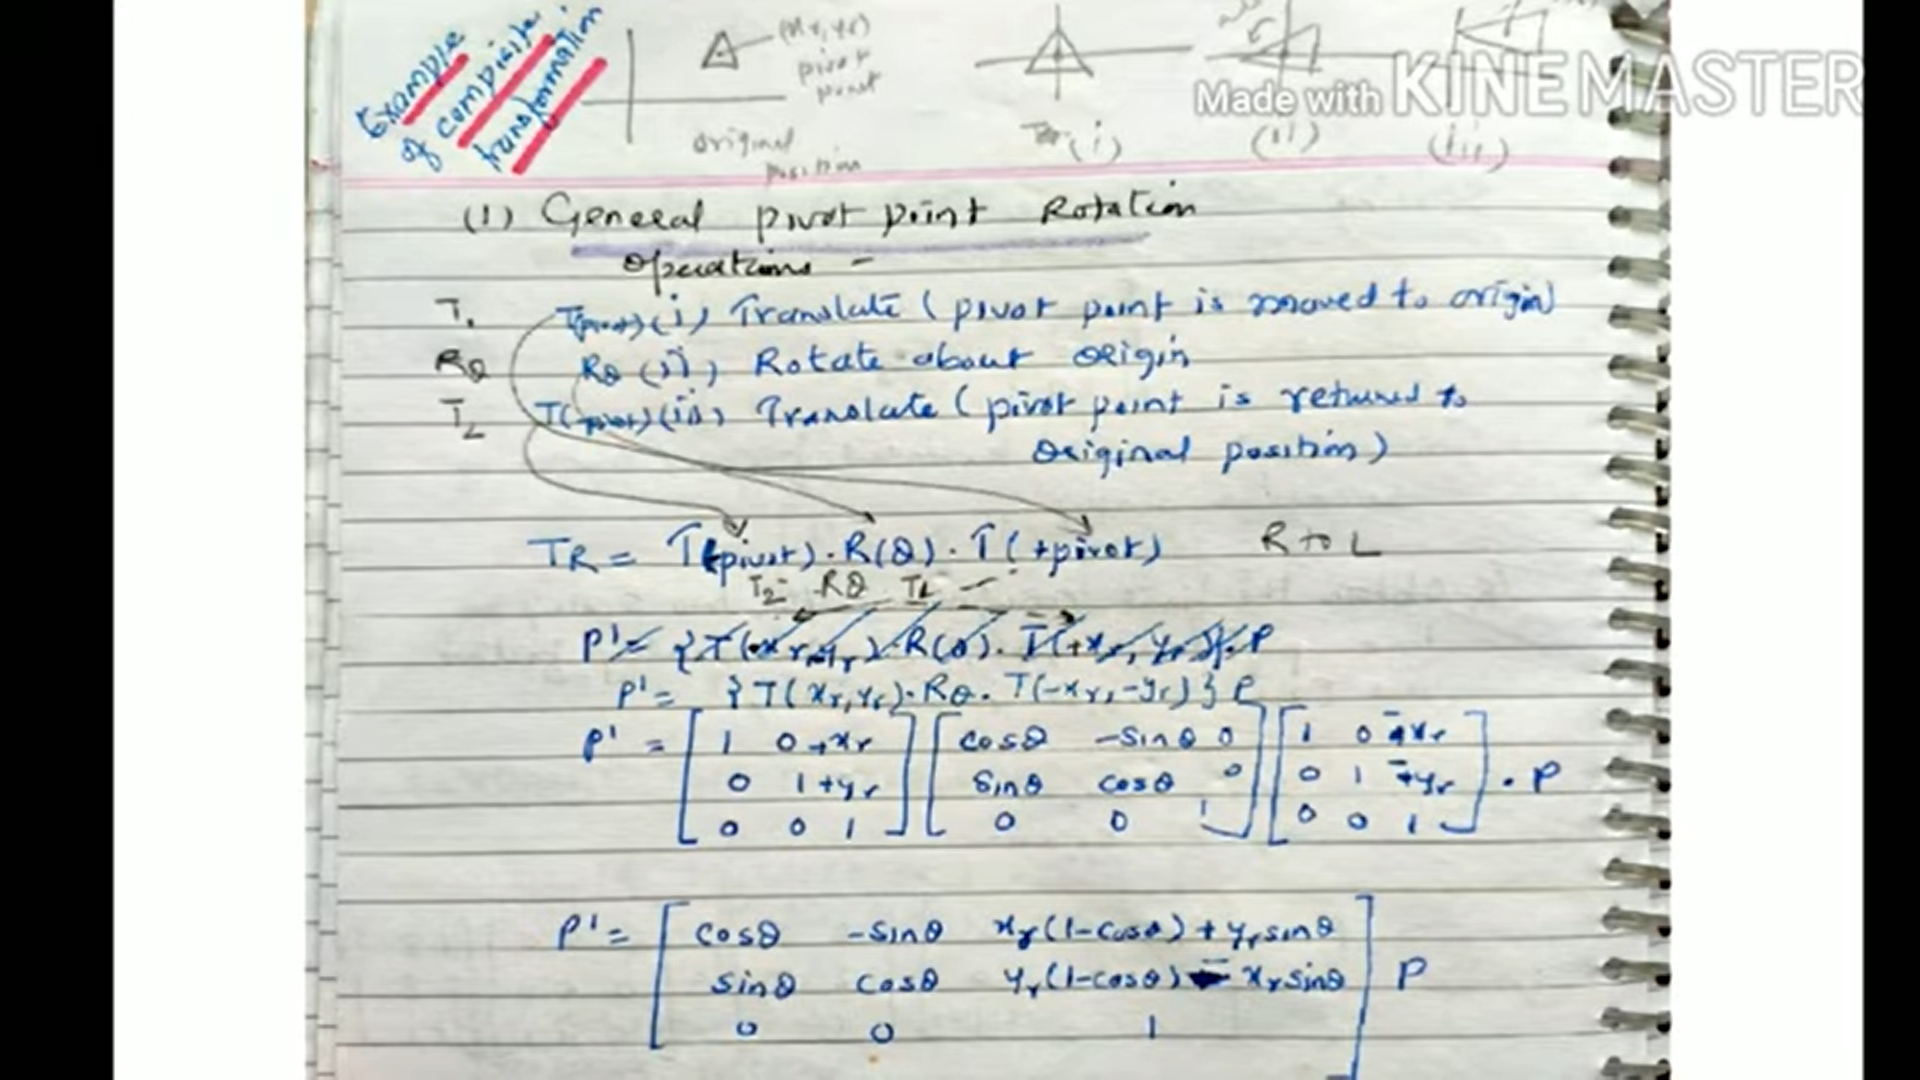 Example
of composite
transformation
(xr, yr)
pivot
point
original
position
(i)
(ii)
(iii)
Made with KINEMASTER
(1) General pivot point Rotation
operations -
T₁ T(pivot) (i) Translate (pivot point is moved to origin)
Rθ Rθ (ii) Rotate about origin
T₂ T(-pivot) (iii) Translate (pivot point is returned to
original position)
TR = T(pivot) · R(θ) · T(+pivot) R to L
T₂ Rθ T₁
P' = {T(xr, yr) · Rθ · T(-xr, -yr)} P
P' = [1 0 +xr] [cosθ -sinθ 0] [1 0 -xr]
[0 1 +yr] [sinθ cosθ 0] [0 1 -yr] · P
[0 0 1] [0 0 1] [0 0 1]
P' = [cosθ -sinθ xr(1-cosθ) + yr sinθ]
[sinθ cosθ yr(1-cosθ) - xr sinθ] P
[0 0 1]